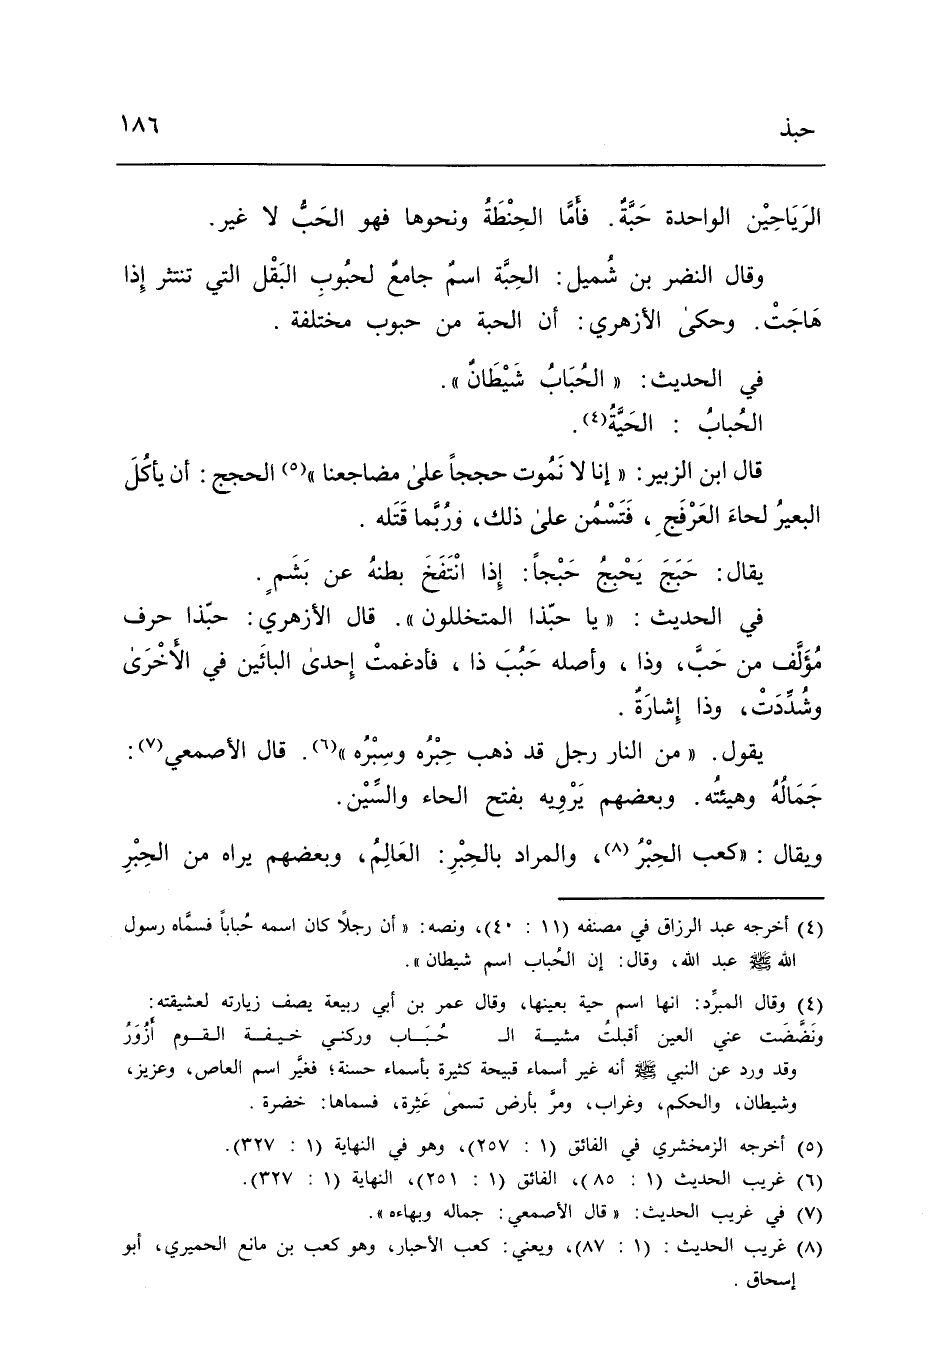 حبذ ١٨٦
الرَيَاحِيْن الواحدة حَبَّةٌ. فأَمَّا الحِنْطَةُ ونحوها فهو الحَبُّ لا غير.
وقال النضر بن شُميل: الحِبَّة اسمٌ جامعٌ لحبُوبِ البَقْل التي تنتثر إِذا
هَاجَتْ. وحكىٰ الأزهري: أن الحبة من حبوب مختلفة.
في الحديث: «الحُبَابُ شَيْطَانٌ».
الحُبابُ: الحَيَّةُ(٤).
قال ابن الزبير: «إنا لا نَمُوت حججاً علىٰ مضاجعنا»(٥) الحجج: أن يأكُلَ
البعيرُ لحاءَ العَرْفَجِ، فَتَسْمُن علىٰ ذلك، ورُبَّما قَتَله.
يقال: حَبَجَ يَحْبِجُ حَبْجاً: إِذا انْتَفَخَ بطنهُ عن بَشَمٍ.
في الحديث: «يا حبّذا المتخللون». قال الأزهري: حبّذا حرف
مُؤَلَّف من حَبَّ، وذا، وأصله حَبُبَ ذا، فأدغمتْ إِحدىٰ البائَين في الأُخْرَىٰ
وشُدِّدَتْ، وذا إِشارَةٌ.
يقول. «من النار رجل قد ذهب حِبْرُه وسِبْرُه»(٦). قال الأصمعي(٧):
جَمَالُهُ وهيئتُه. وبعضهم يَرْوِيه بفتح الحاء والسِّيْن.
ويقال: «كعب الحِبْرُ(٨)، والمراد بالحِبْرِ: العَالِمُ، وبعضهم يراه من الحِبْرِ
(٤) أخرجه عبد الرزاق في مصنفه (١١ : ٤٠)، ونصه: «أن رجلًا كان اسمه حُباباً فسمَّاه رسول
الله ﷺ عبد الله، وقال: إن الحُباب اسم شيطان».
(٤) وقال المبرِّد: انها اسم حية بعينها، وقال عمر بن أبي ربيعة يصف زيارته لعشيقته:
ونَضَّضَت عني العين أقبلتُ مشيـة الـ حُبَـاب وركنـي خيـفـة القـوم أَزْوَرُ
وقد ورد عن النبي ﷺ أنه غير أسماء قبيحة كثيرة بأسماء حسنة؛ فغيَّر اسم العاص، وعزيز،
وشيطان، والحكم، وغراب، ومرَّ بأرض تسمىٰ عَثِرة، فسماها: خضرة.
(٥) أخرجه الزمخشري في الفائق (١ : ٢٥٧)، وهو في النهاية (١ : ٣٢٧).
(٦) غريب الحديث (١ : ٨٥)، الفائق (١ : ٢٥١)، النهاية (١ : ٣٢٧).
(٧) في غريب الحديث: «قال الأصمعي: جماله وبهاءه».
(٨) غريب الحديث: (١ : ٨٧)، ويعني: كعب الأحبار، وهو كعب بن مانع الحميري، أبو
إسحاق.